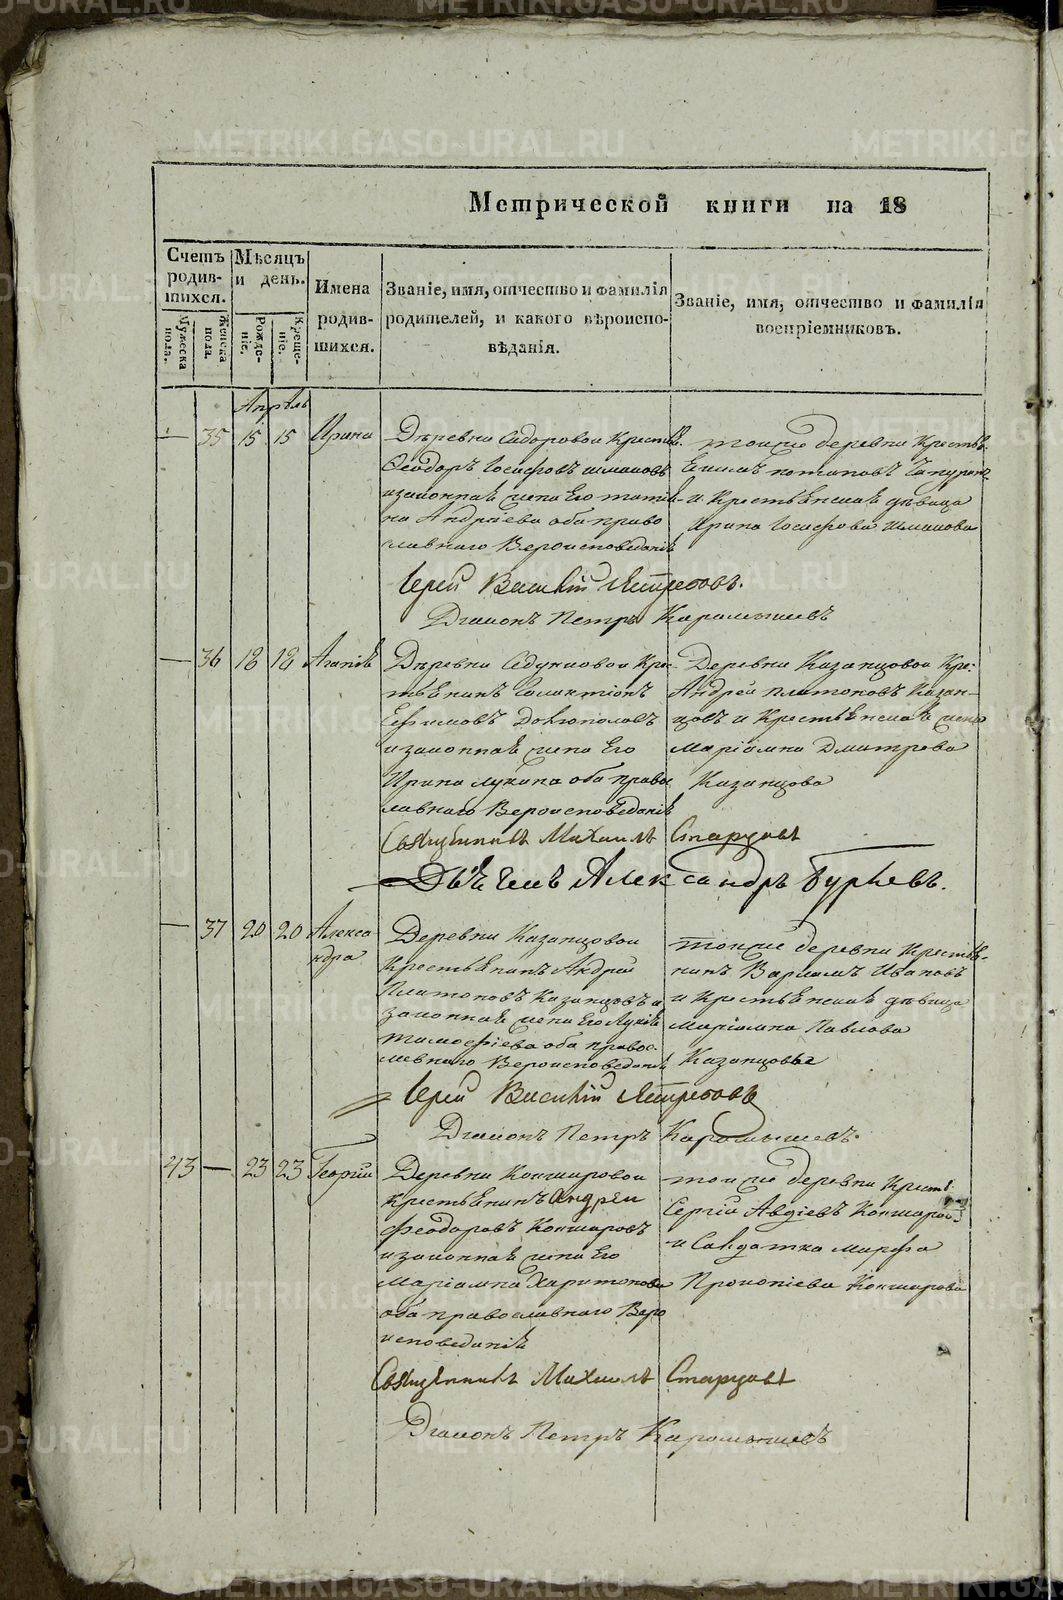 Метрической книги на 18
Счетъ родив-шихся.
Мѣсяцъ и день.
Имена родив-шихся.
Званіе, имя, отчество и фамилія родителей, и какого вѣроиспо-вѣданія.
Званіе, имя, отчество и фамилія воспріемниковъ.
Мужеска пола.
Женска пола.
Рожде-ніе.
Креще-ніе.
Апрѣль
— 35 15 15 Ирина
Деревни Сидоровой Крестьян.
Феодоръ Іосифовъ
и законная жена Его Татья-
на Андреева оба право
славнаго Вероисповеданія
тойже деревни Крестья.
Потаповъ
и Крестьянская девица
Ирина Іосифова
Іерей Василій Ястребовъ.
Діаконъ Петръ Карамышевъ
— 36 18 18 Агапія
Деревни Седунковой Кре-
тьянинъ Галактіонъ
Ефимовъ
и законная жена Его
Ирина Лукина оба право
славнаго Вероисповеданія
Деревни Казанцовой Кре:
Андрей Платоновъ Казан-
цовъ и Крестьянская жена
Маріамна Дмитрева
Казанцова
Священникъ Михаилъ Стардовъ
Дьячекъ Александръ Гурьевъ.
— 37 20 20 Алекса
ндра
Деревни Казанцовой
Крестьянинъ Андрей
Платоновъ Казанцовъ и
законная жена Его Лукія
Тимофіева оба правос-
лавнаго Вероисповеданія
тойже деревни Крестья-
нинъ Варлаамъ Ивановъ
и Крестьянская девица
Маріамна Павлова
Казанцовы
Іерей Василій Ястребовъ
Діаконъ Петръ Карамышевъ.
43 — 23 23 Георгій
Деревни Кокшаровой
Крестьянинъ Андрей
Феодоровъ Кокшаровъ
и законная жена Его
Маріамна Харитонова
оба православнаго Веро
исповеданія
тойже деревни Крест.
Сергій Авдіевъ Кокшаровъ
и Солдатка Марфа
Прокопіева Кокшарова
Священникъ Михаилъ Стардовъ
Діаконъ Петръ Карамышевъ
METRIKI.GASO-URAL.RU